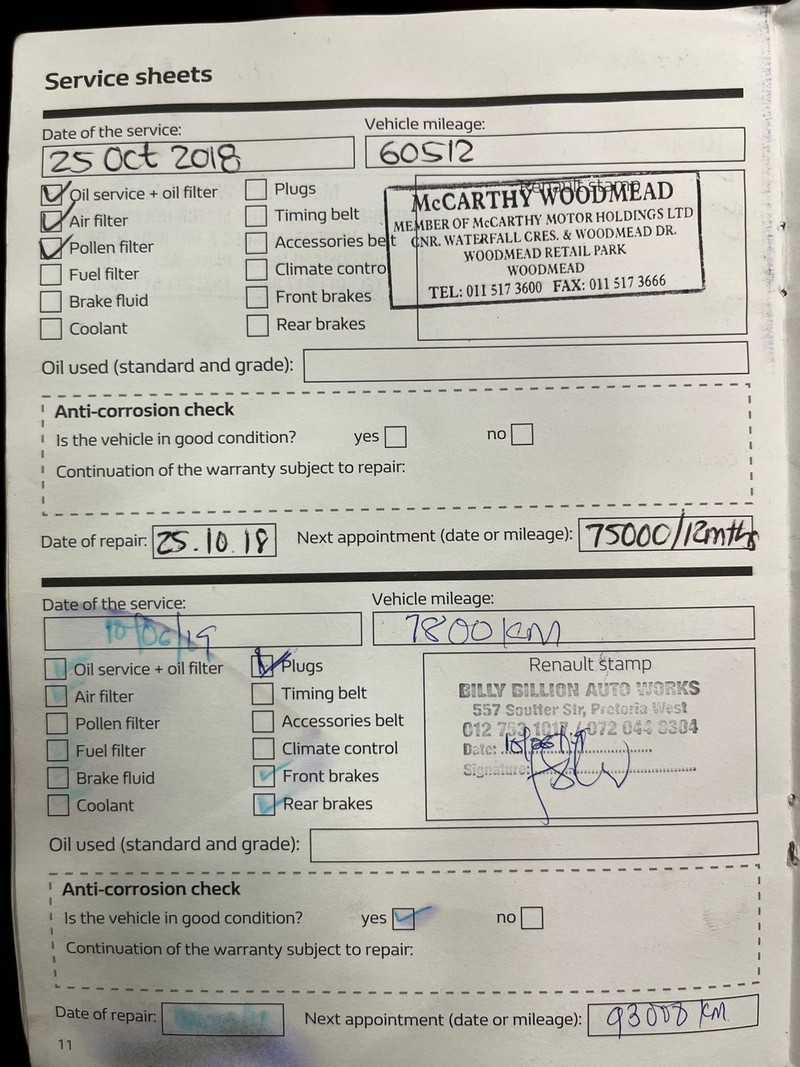 Service sheets
Date of the service:
Vehicle mileage:
25 Oct 2018
60512
Oil service + oil filter
Air filter
Pollen filter
Fuel filter
Brake fluid
Coolant
Plugs
Timing belt
Accessories belt
Climate contro
Front brakes
Rear brakes
Renault stamp
McCARTHY WOODMEAD
MEMBER OF McCARTHY MOTOR HOLDINGS LTD
CNR. WATERFALL CRES. & WOODMEAD DR.
WOODMEAD RETAIL PARK
WOODMEAD
TEL: 011 517 3600 FAX: 011 517 3666
Oil used (standard and grade):
Anti-corrosion check
Is the vehicle in good condition? yes no
Continuation of the warranty subject to repair:
Date of repair: 25.10.18 Next appointment (date or mileage): 75000/12mths
Date of the service:
Vehicle mileage:
10/06/19
7800 KM
Oil service + oil filter
Air filter
Pollen filter
Fuel filter
Brake fluid
Coolant
Plugs
Timing belt
Accessories belt
Climate control
Front brakes
Rear brakes
Renault stamp
BILLY BILLION AUTO WORKS
557 Soutter Str, Pretoria West
012 753 1017 / 072 044 8304
Date:
Signature:
Oil used (standard and grade):
Anti-corrosion check
Is the vehicle in good condition? yes no
Continuation of the warranty subject to repair:
Date of repair: Next appointment (date or mileage): 93000 KM
11